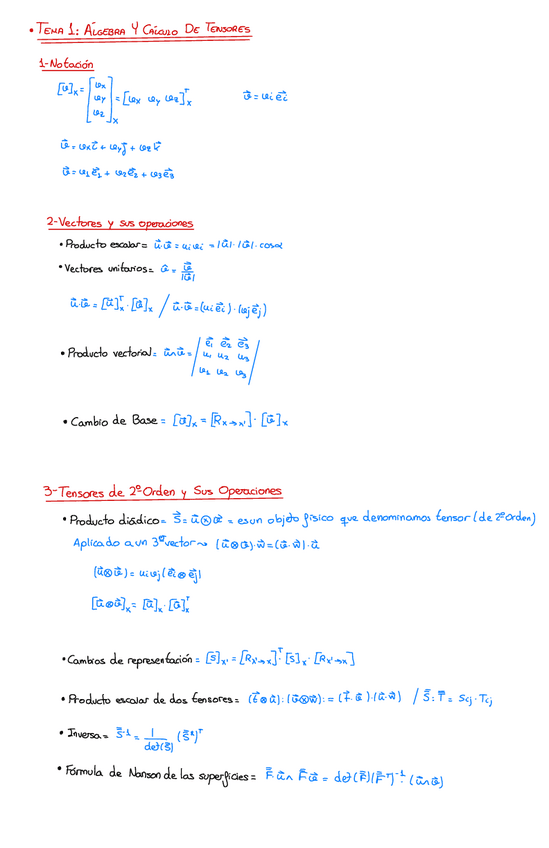 • TEMA 1: ÁLGEBRA Y CÁLCULO DE TENSORES
1-Notación
[v⃗]ₓ = [vx vy vz]ₓ = [vx vy vz]ᵀₓ    v⃗ = vi e⃗i
v⃗ = vx i⃗ + vy j⃗ + vz k⃗
v⃗ = v1 e⃗1 + v2 e⃗2 + v3 e⃗3
2-Vectores y sus operaciones
• Producto escalar = u⃗·v⃗ = ui vi = |u⃗|·|v⃗|·cosα
• Vectores unitarios = v̂ = v⃗/|v⃗|
u⃗·v⃗ = [u⃗]ᵀₓ·[v⃗]ₓ / u⃗·v⃗ = (ui e⃗i)·(vj e⃗j)
• Producto vectorial = u⃗∧v⃗ = | e⃗1 e⃗2 e⃗3
u1 u2 u3
v1 v2 v3 |
• Cambio de Base = [v⃗]ₓ = [Rx→x']·[v⃗]ₓ
3-Tensores de 2º Orden y Sus Operaciones
• Producto diádico = S⃗ = u⃗⊗v⃗ = es un objeto físico que denominamos tensor (de 2º Orden)
Aplicado a un 3º vector ~> (u⃗⊗v⃗)·w⃗ = (v⃗·w⃗)·u⃗
(u⃗⊗v⃗) = ui vj (e⃗i⊗e⃗j)
[u⃗⊗v⃗]ₓ = [u⃗]ₓ·[v⃗]ᵀₓ
• Cambios de representación = [S]x' = [Rx'→x]ᵀ·[S]x·[Rx'→x]
• Producto escalar de dos tensores = (t⃗⊗u⃗):(v⃗⊗w⃗) := (t⃗·v⃗)·(u⃗·w⃗) / S̿:T̿ = Sij·Tij
• Inversa = S̿⁻¹ = 1/det(S̿) (S̿*)ᵀ
• Fórmula de Nanson de las superficies = F̿u⃗∧F̿v⃗ = det(F̿)(F̿ᵀ)⁻¹·(u⃗∧v⃗)